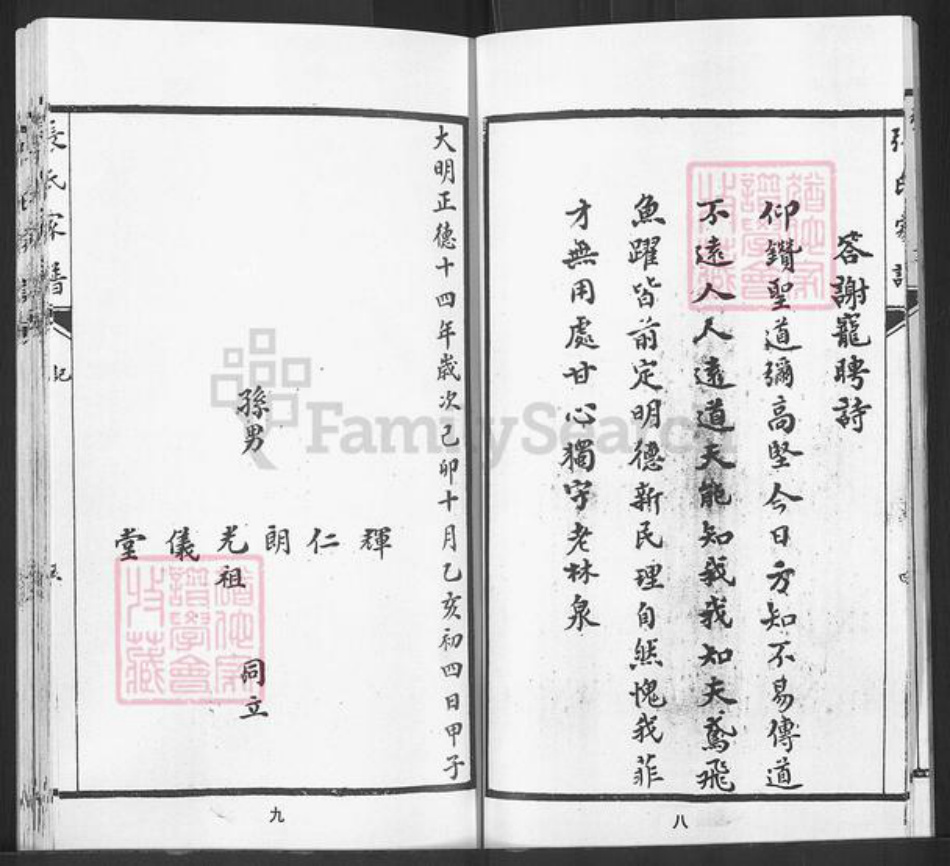 張氏家譜
答謝寵聘詩
仰鑽聖道彌高堅今日方知不易傳道
不遠人人遠道天能知我我知天鳶飛
魚躍皆前定明德新民理自然愧我菲
才無用處甘心獨守老林泉
八
大明正德十四年歲次己卯十月乙亥初四日甲子
孫男
輝仁朗光祖儀堂
同立
張氏家譜
記
九
FamilySearch